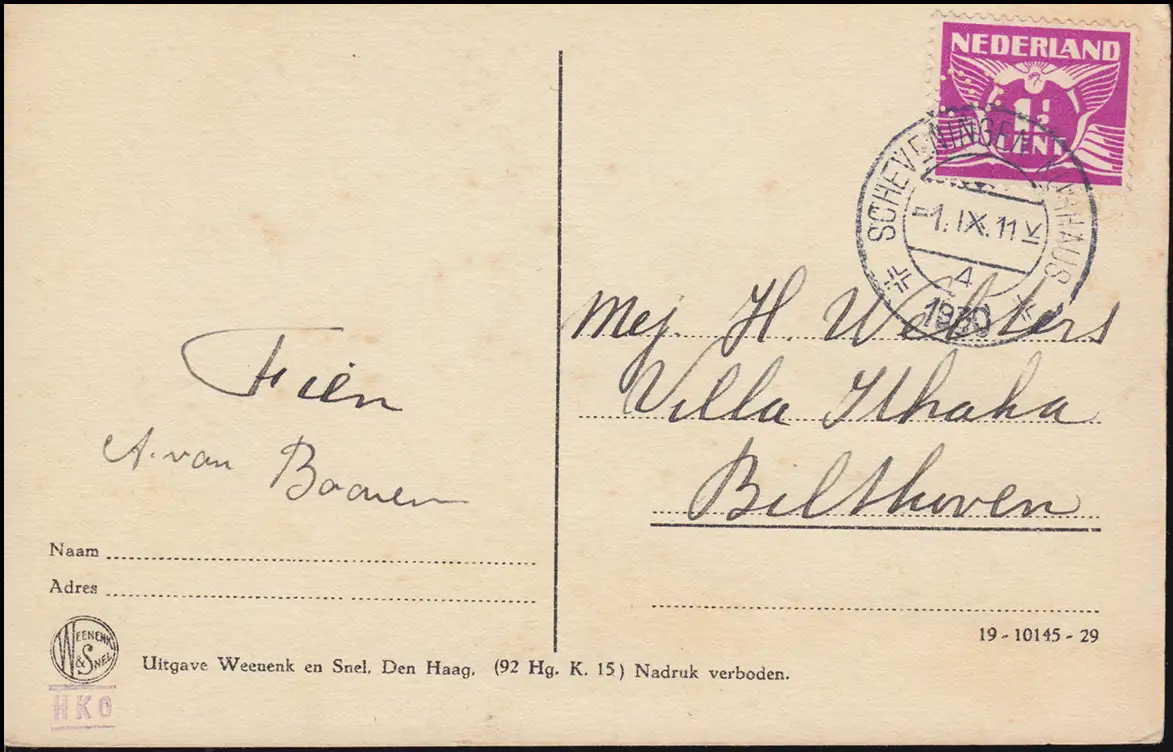 NEDERLAND
1½
CENT
SCHEVENINGEN KURHAUS
1.IX.11
4
1930
Mej. H. Wolters
Villa Ithaka
Bilthoven
Fien
A. van
Naam
Adres
19 - 10145 - 29
WEENENK & SNEL
Uitgave Weenenk en Snel, Den Haag. (92 Hg. K. 15) Nadruk verboden.
HKO